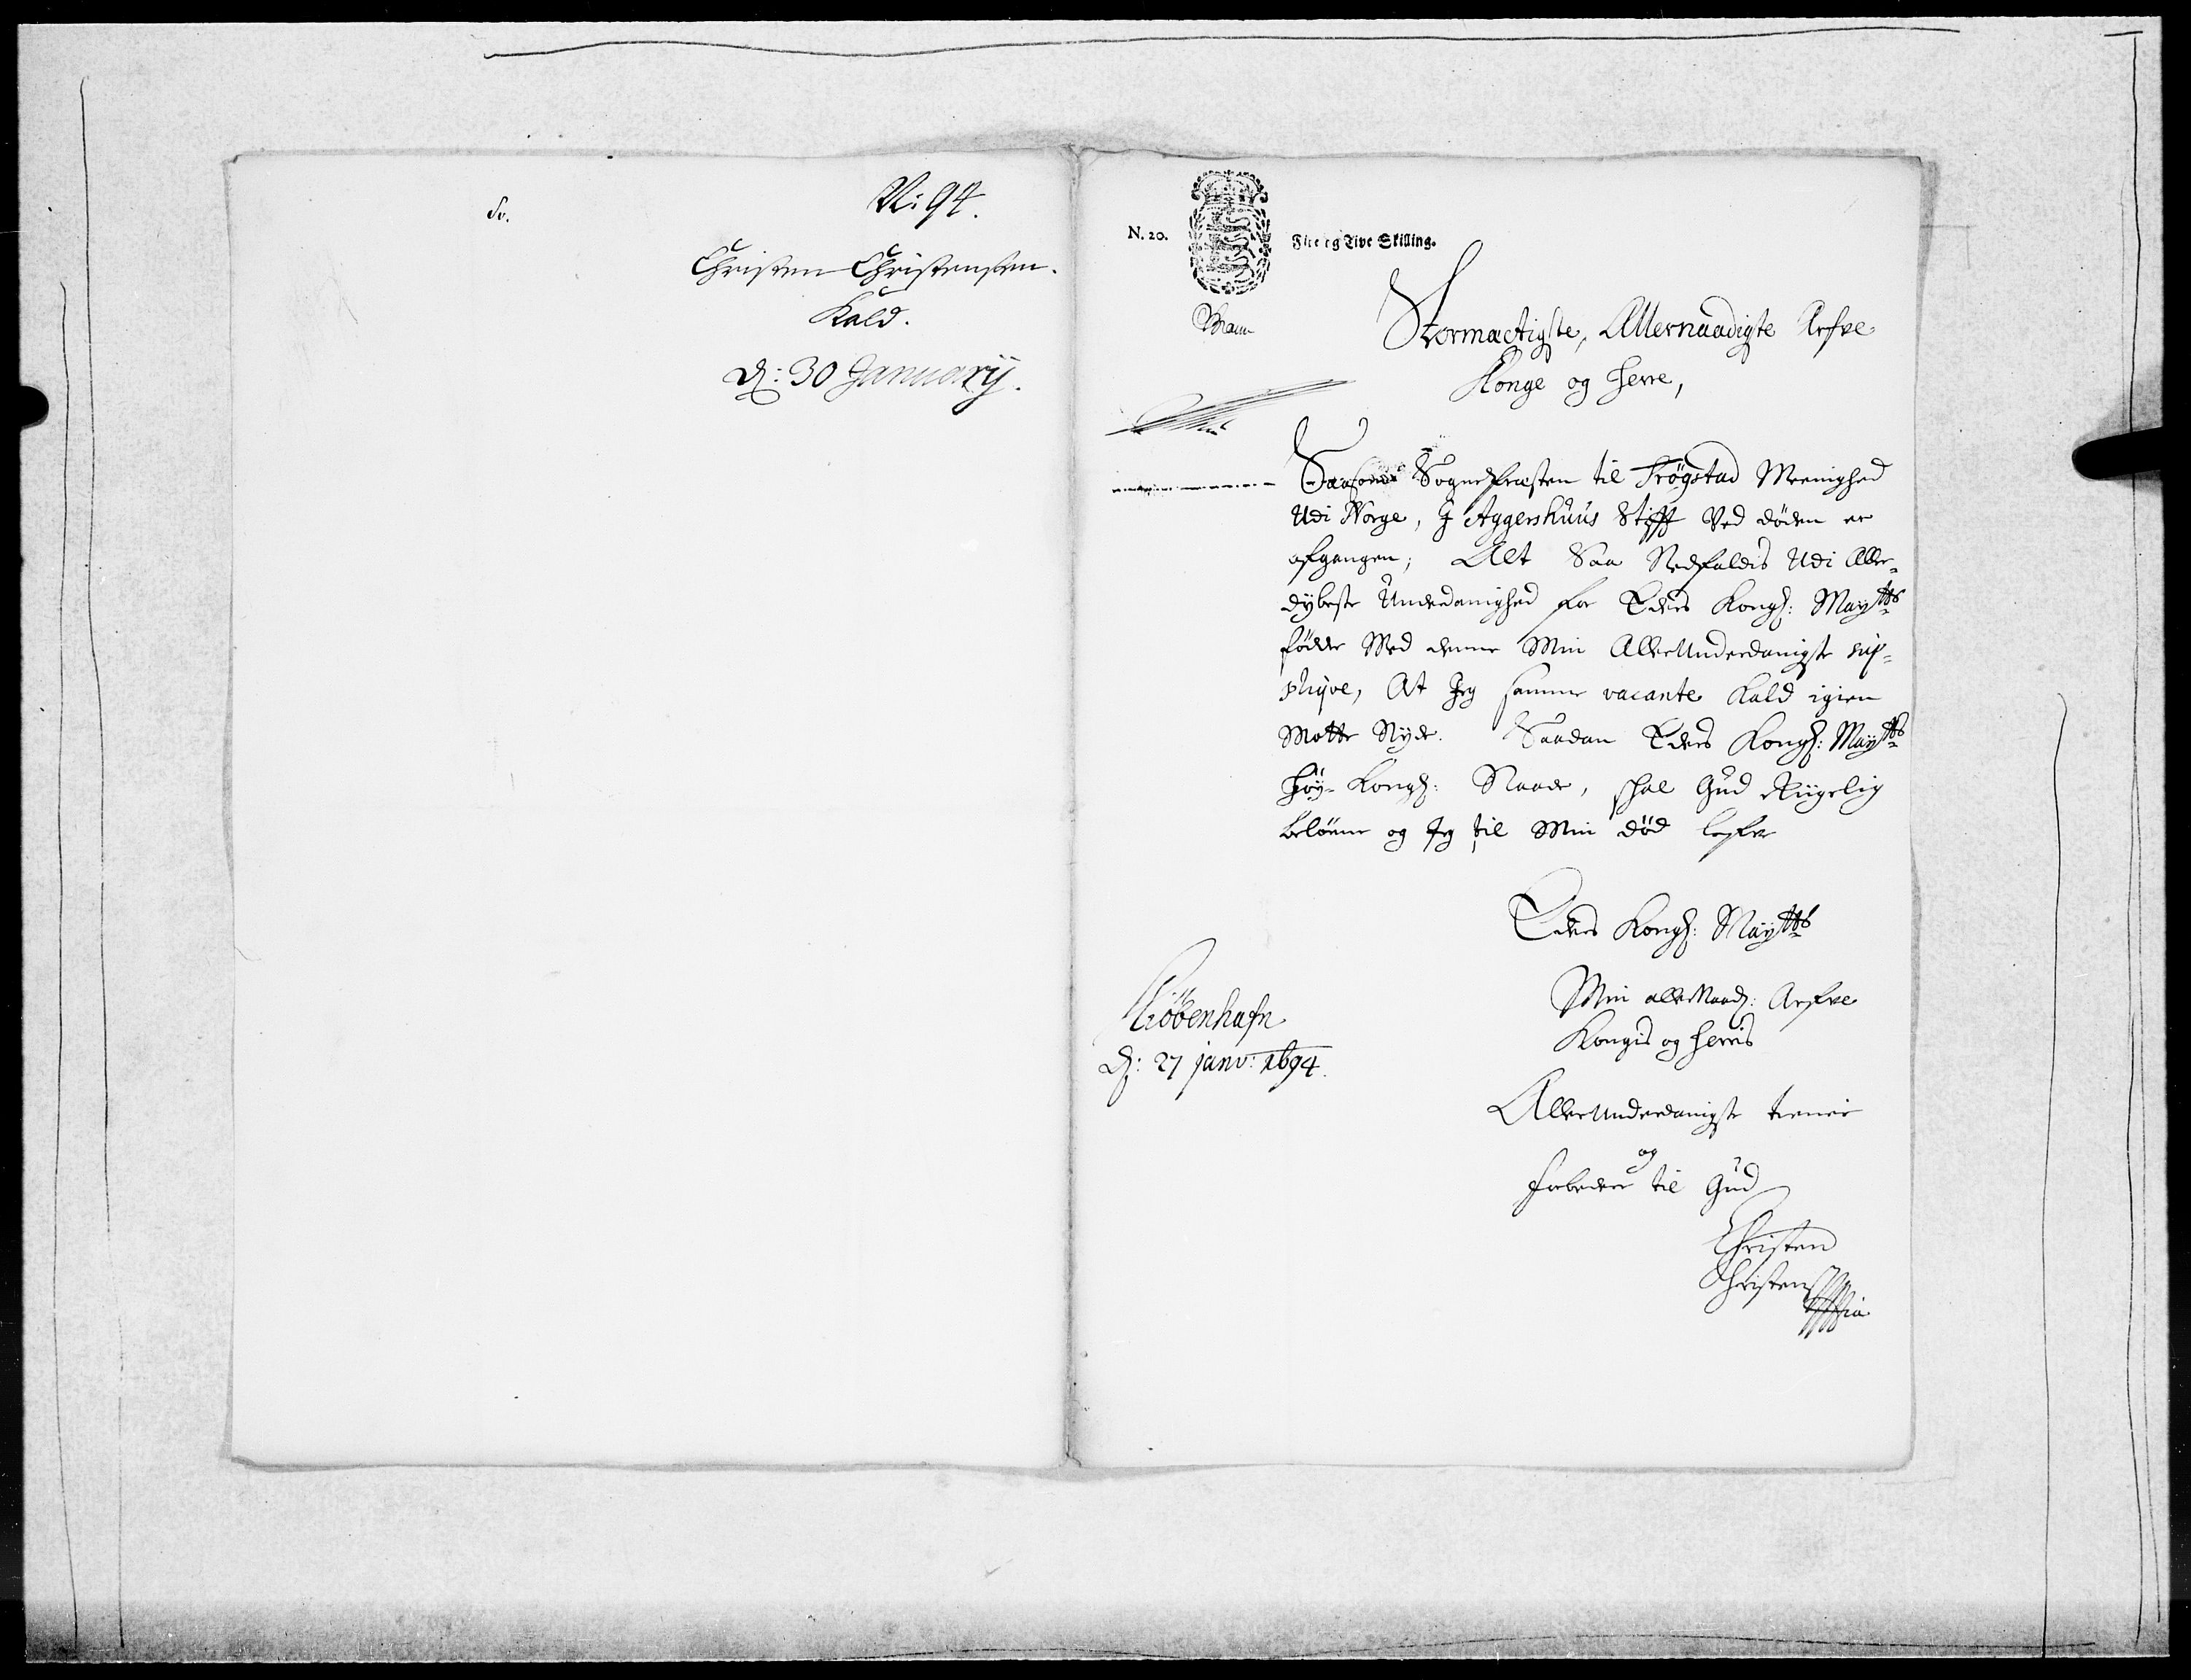 N: 94.
Christen Christensen.
Kald.
d: 30 January.
N. 20.
Fire og Tive Skilling.
Stormæctigste, Allernaadigste Arfve
Konge og Herre,
Saasom Sognepræsten til Trøgstad Meenighed
Udi Norge, J Aggershuus Stifft Ved døden er
afgangen; Alt Saa Nedfaldis Udi Aller-
dybeste Underdanighed for Eders Kongl: Maytts
fødder Med denne Min AllerUnderdanigste sup-
plique, At Jeg samme vacante Kald igien
Motte Nyde. Saadan Eders Kongl: Maytts
Høy-Kongl: Naade, skal Gud Riigelig
belønne og Jeg til Min død lefver
Eders Kongl: Maytts
Min allerNaad: Arfve
Kongis og Herris
Kiøbenhafn
d: 27 janv: 1694.
AllerUnderdanigste tienner
og
forbeder til Gud
Christen
Christens